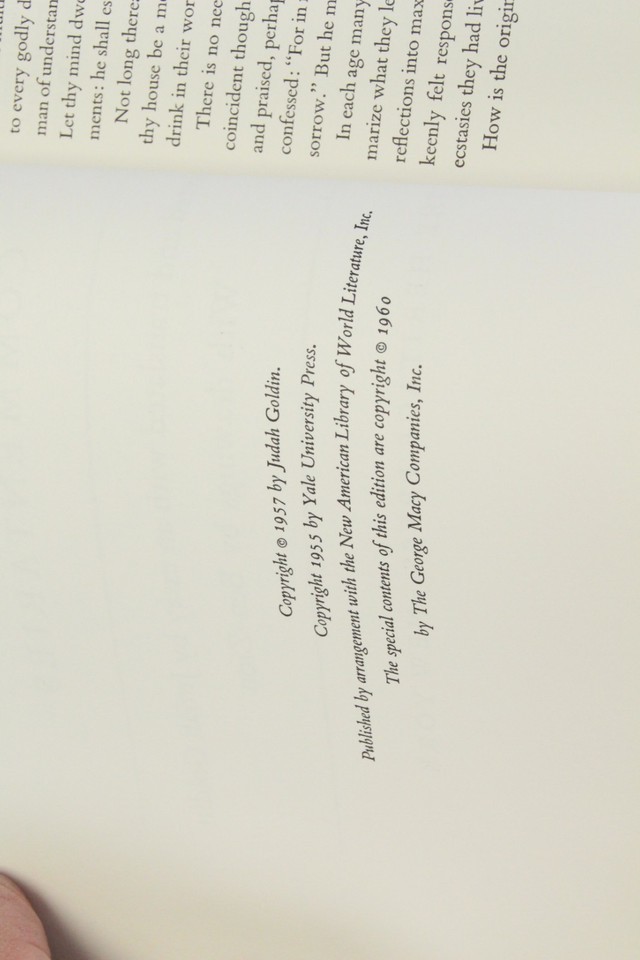 Copyright © 1957 by Judah Goldin.
Copyright 1955 by Yale University Press.
Published by arrangement with the New American Library of World Literature, Inc.
The special contents of this edition are copyright © 1960
by The George Macy Companies, Inc.
to every godly
man of understan
Let thy mind dwe
ments: he shall es
Not long therea
thy house be a
drink in their wor
There is no nee
coincident though
and praised, perhap
confessed: “For in
sorrow.” But he
In each age many
marize what they le
reflections into max
keenly felt respons
ecstasies they had liv
How is the origin